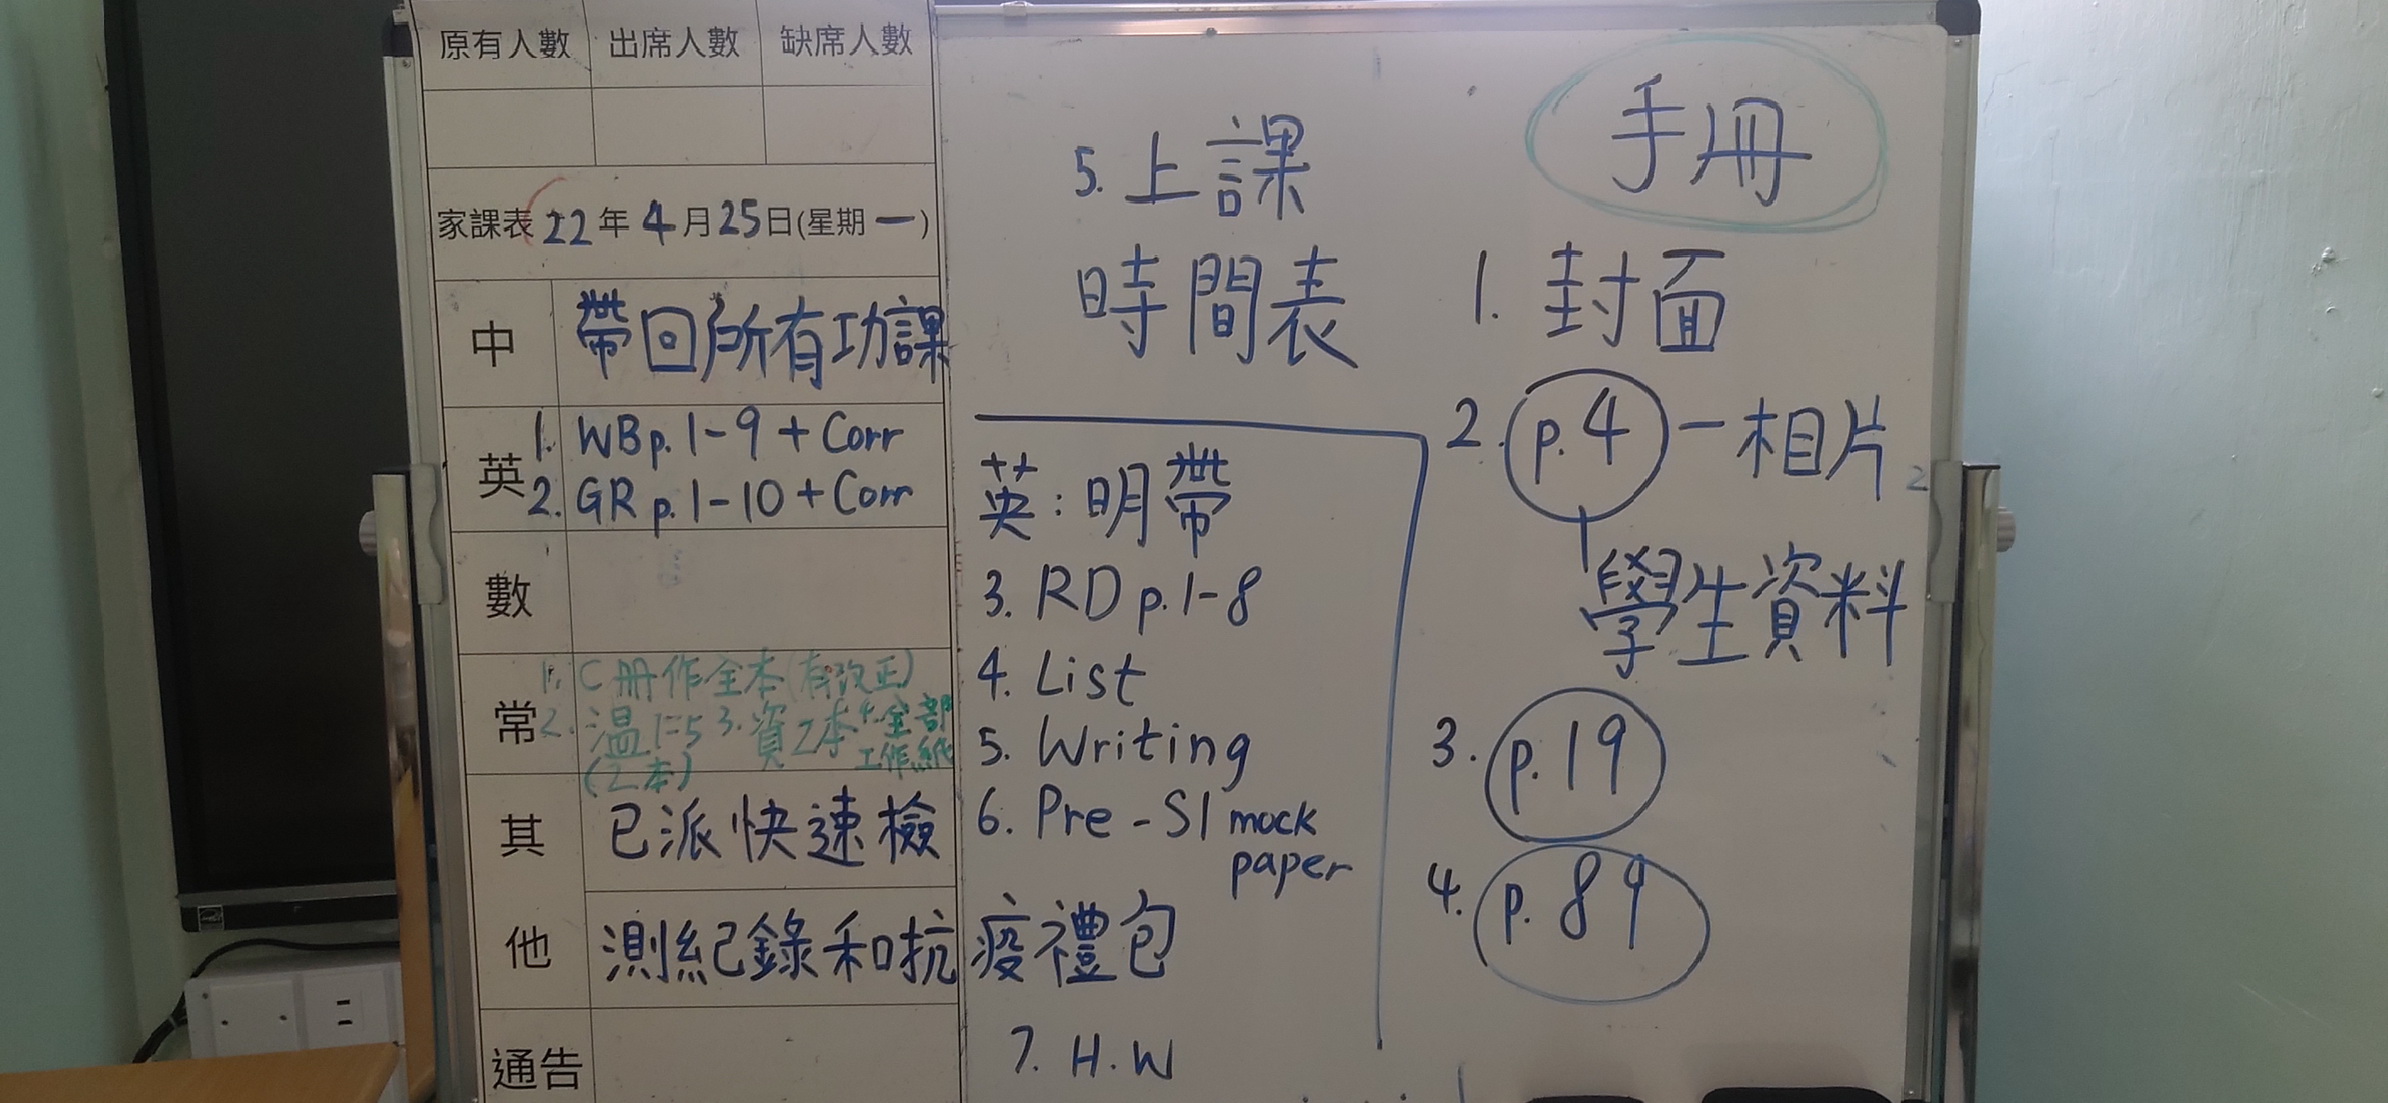 原有人數 出席人數 缺席人數
家課表 22年4月25日(星期一)
中 帶回所有功課
英 1. WB p.1-9 + Corr
2. GR p.1-10 + Corr
數
常 1. C冊作全本(有改正)
2. 溫1-5 3. 資2本 4. 全部
(2本) 工作紙
其他 已派快速檢
測紀錄和抗疫禮包
通告
5. 上課
時間表
英:明帶
3. RD p.1-8
4. List
5. Writing
6. Pre-S1 mock
paper
7. H.W
手冊
1. 封面
2. p.4 - 相片
學生資料
3. p.19
4. p.89